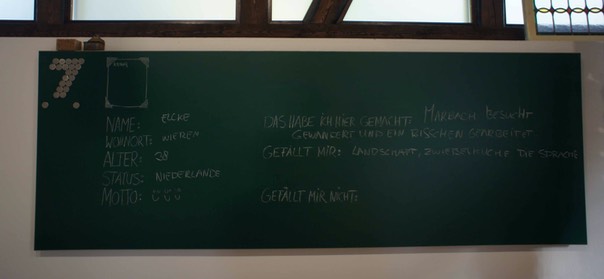 7.
NAME: ELCKE
WOHNORT:
ALTER: 28
STATUS: NIEDERLANDE
MOTTO:
DAS HABE ICH HIER GEMACHT: MARBACH BESUCHT
GEWANDERT UND EIN BISSCHEN GEARBEITET
GEFÄLLT MIR: LANDSCHAFT, DIE SPRACHE
GEFÄLLT MIR NICHT: